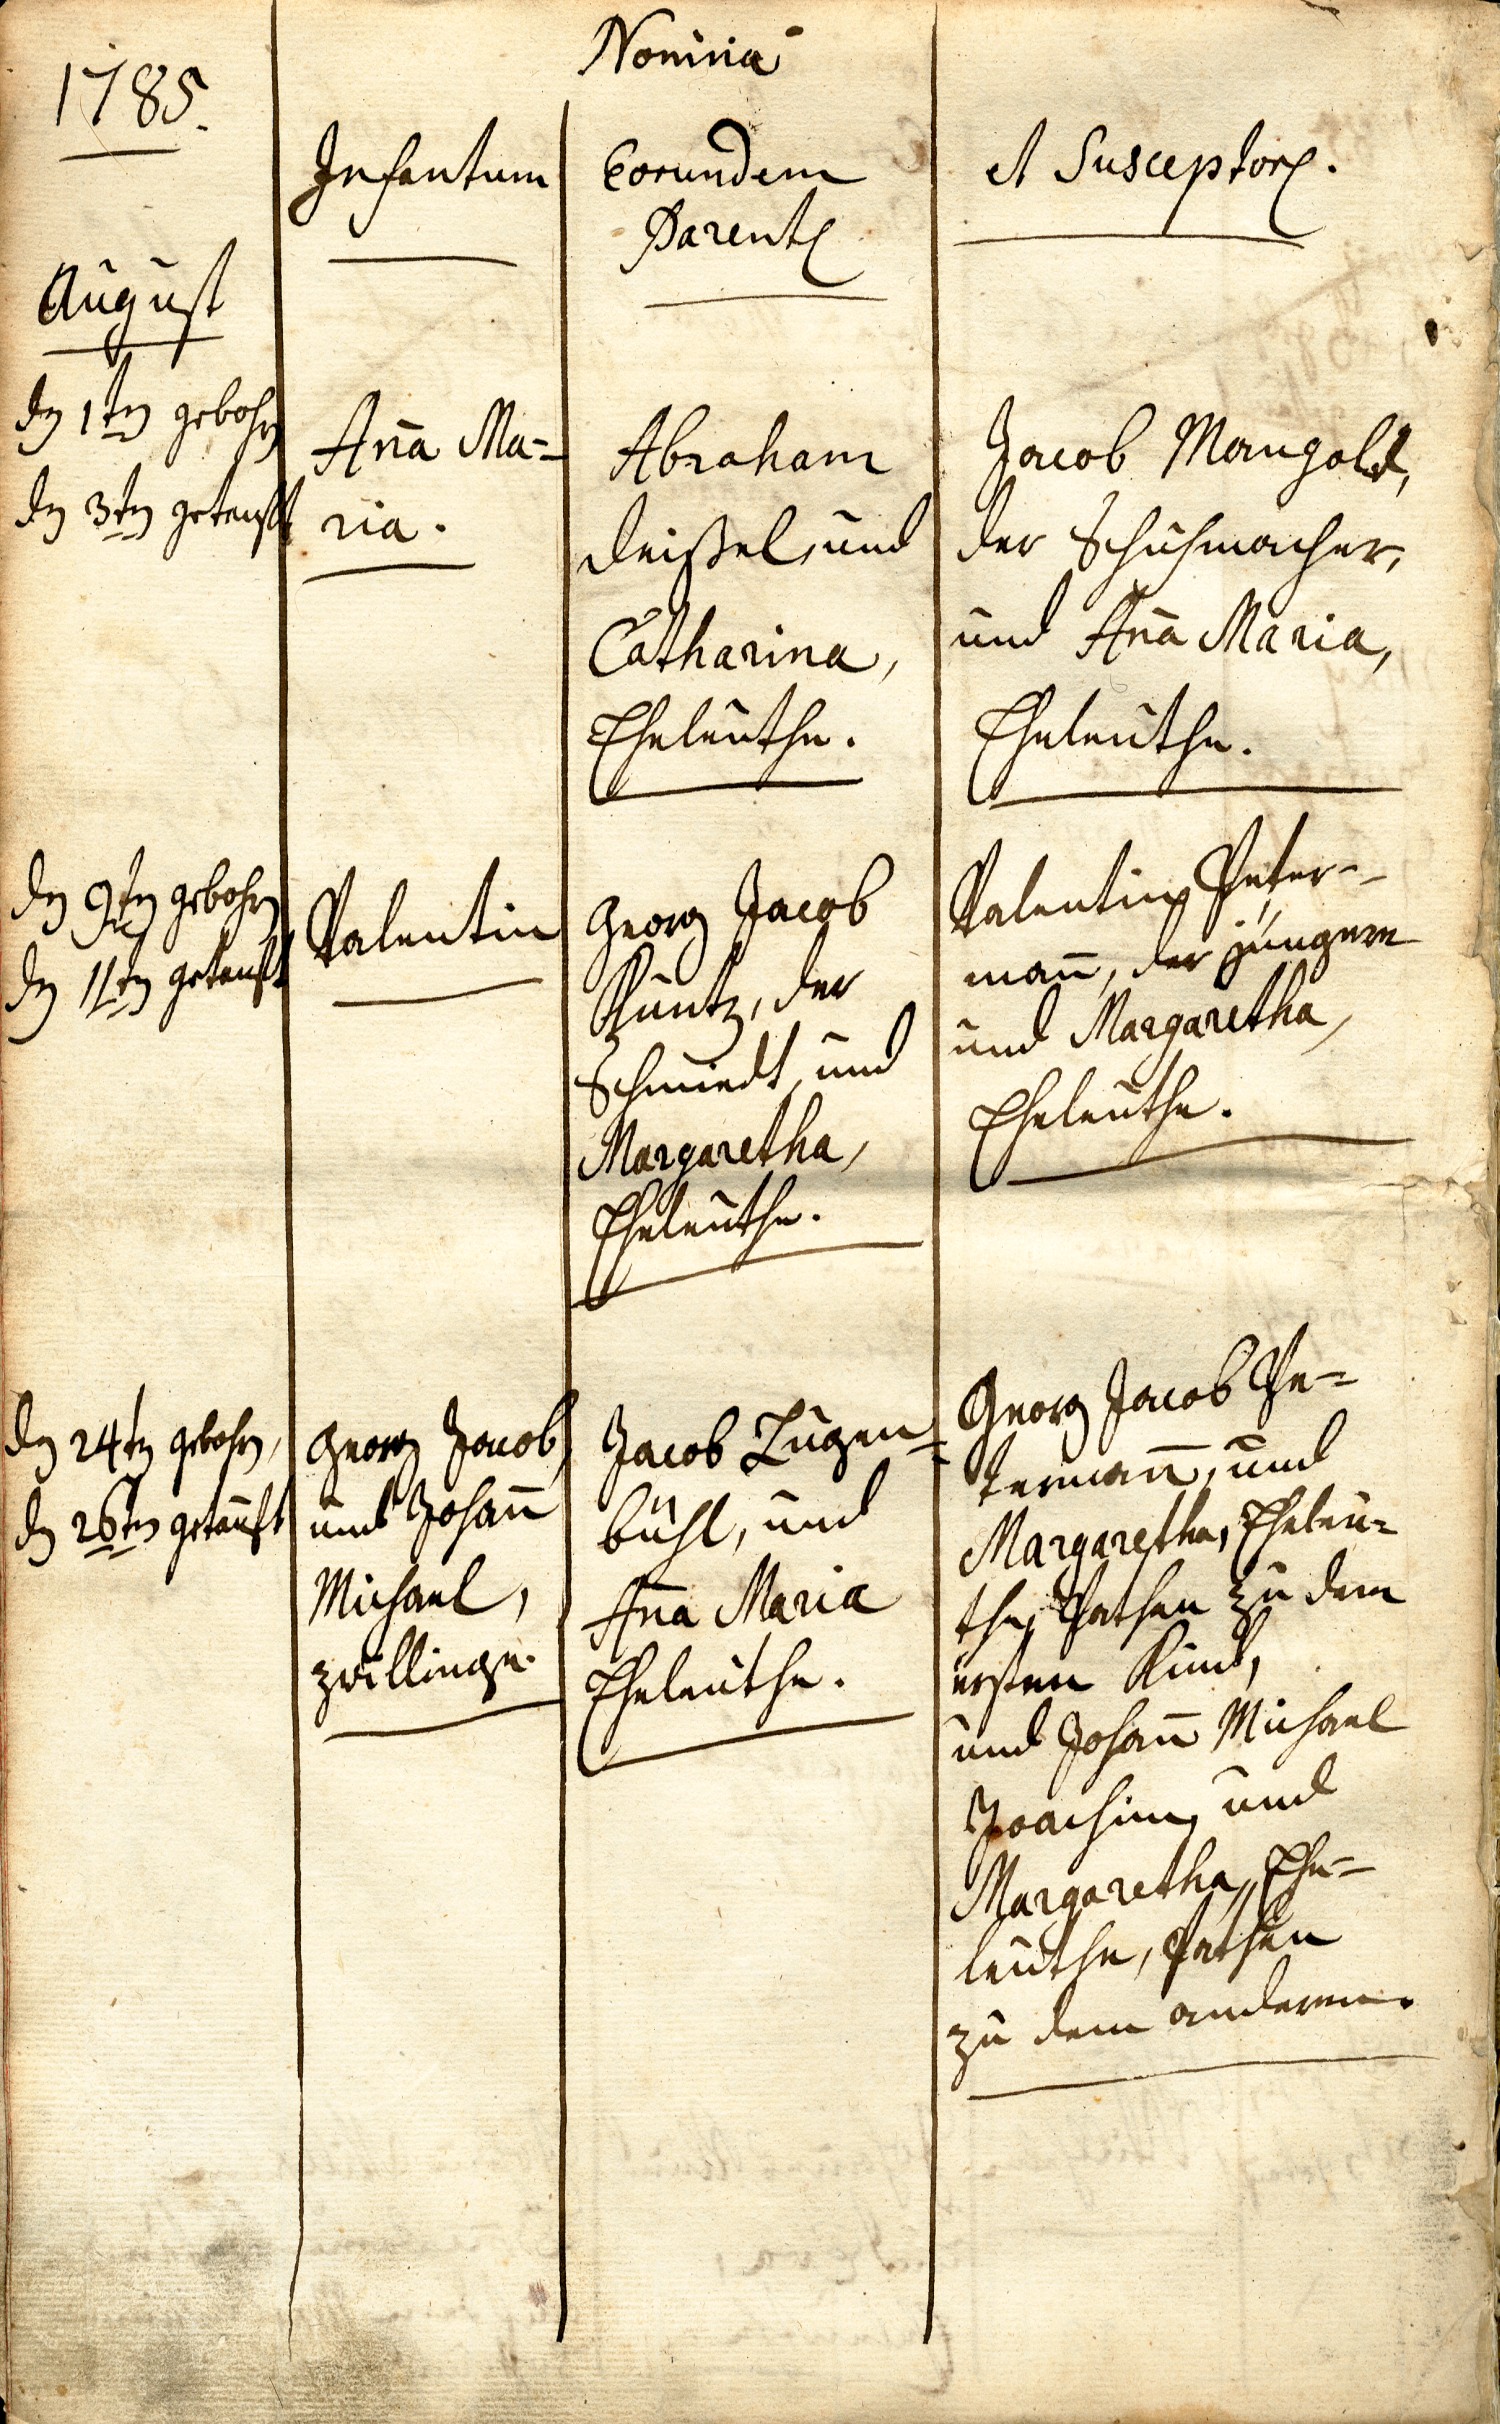 1785.
Nomina
Infantum
Eorundem
Parent
et Susceptor.
August
den 1ten gebohren
den 3ten getaufft
Anna Ma=
ria.
Abraham
Deißel, und
Catharina,
Eheleuthe.
Jacob Mangold,
der Schuhmacher,
und Anna Maria,
Eheleuthe.
den 9ten gebohren
den 11ten getaufft
Valentin
Georg Jacob
der
Schmiedt, und
Margaretha,
Eheleuthe.
Valentin Peter-
mann, der jüngere
und Margaretha,
Eheleuthe.
den 24ten gebohren,
den 26ten getaufft
Georg Jacob,
und Johann
Michael,
zwillinge.
Jacob Lugen=
bühl, und
Anna Maria
Eheleuthe.
Georg Jacob Pe=
termann, und
Margaretha, Eheleu=
the, Pathen zu dem
ersten Kind,
und Johann Michael
Joachim, und
Margaretha, Ehe=
leuthe, Pathen
zu dem anderen.